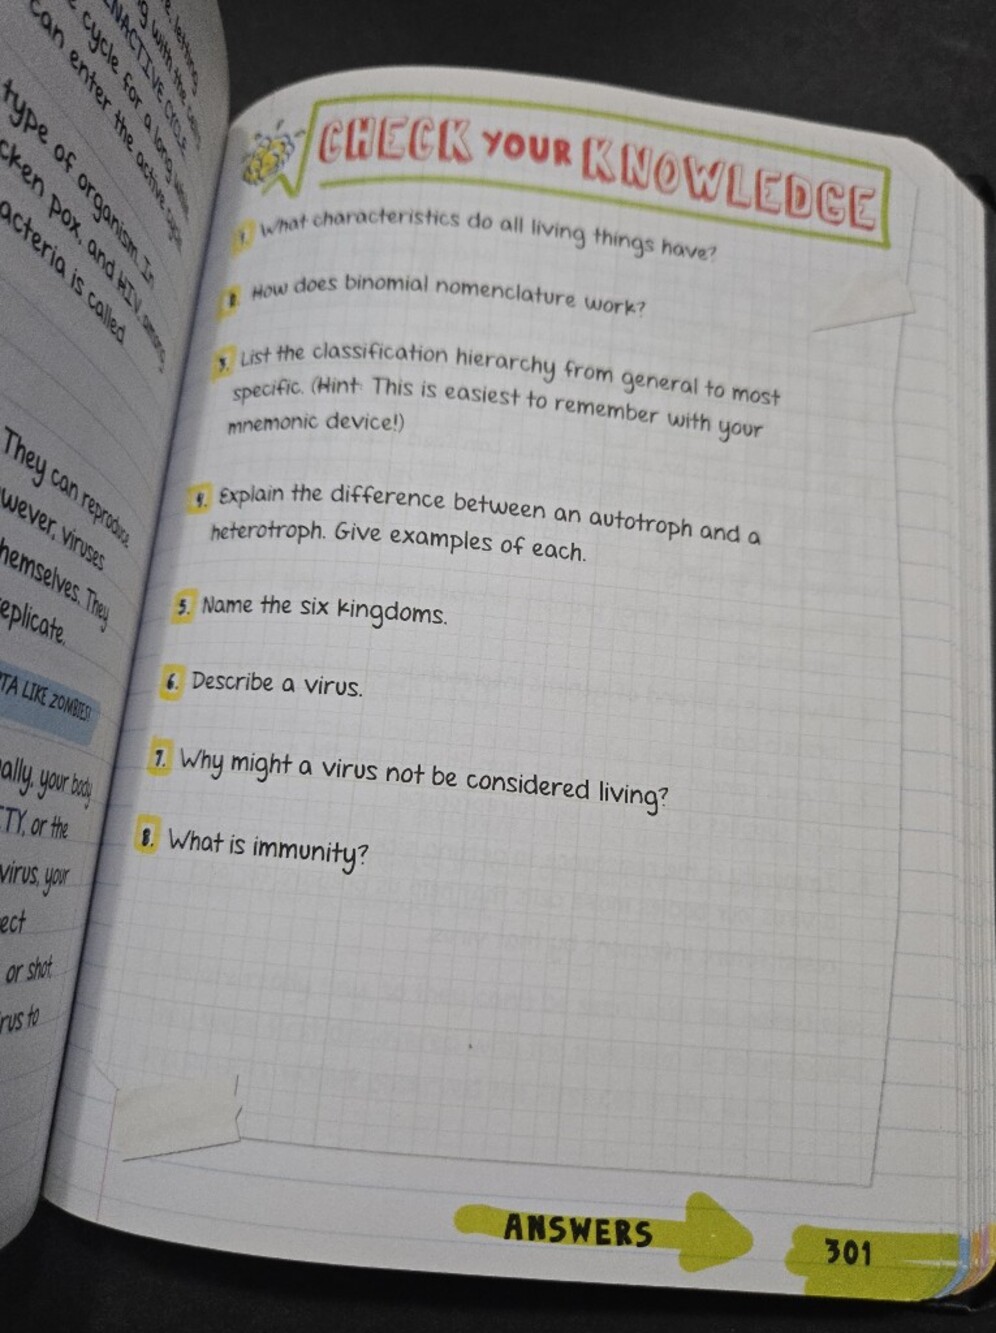 e, letting
g with the cell's
INACTIVE CYCLE
cycle for a long while
can enter the active cycle
type of organism. In
cken pox, and HIV, among
acteria is called
They can reproduce
wever, viruses
hemselves. They
eplicate.
TA LIKE ZOMBIES!
ally, your body
TY, or the
virus, your
ect
or shot
rus to
CHECK YOUR KNOWLEDGE
1. What characteristics do all living things have?
2. How does binomial nomenclature work?
3. List the classification hierarchy from general to most
specific. (Hint: This is easiest to remember with your
mnemonic device!)
4. Explain the difference between an autotroph and a
heterotroph. Give examples of each.
5. Name the six kingdoms.
6. Describe a virus.
7. Why might a virus not be considered living?
8. What is immunity?
ANSWERS
301